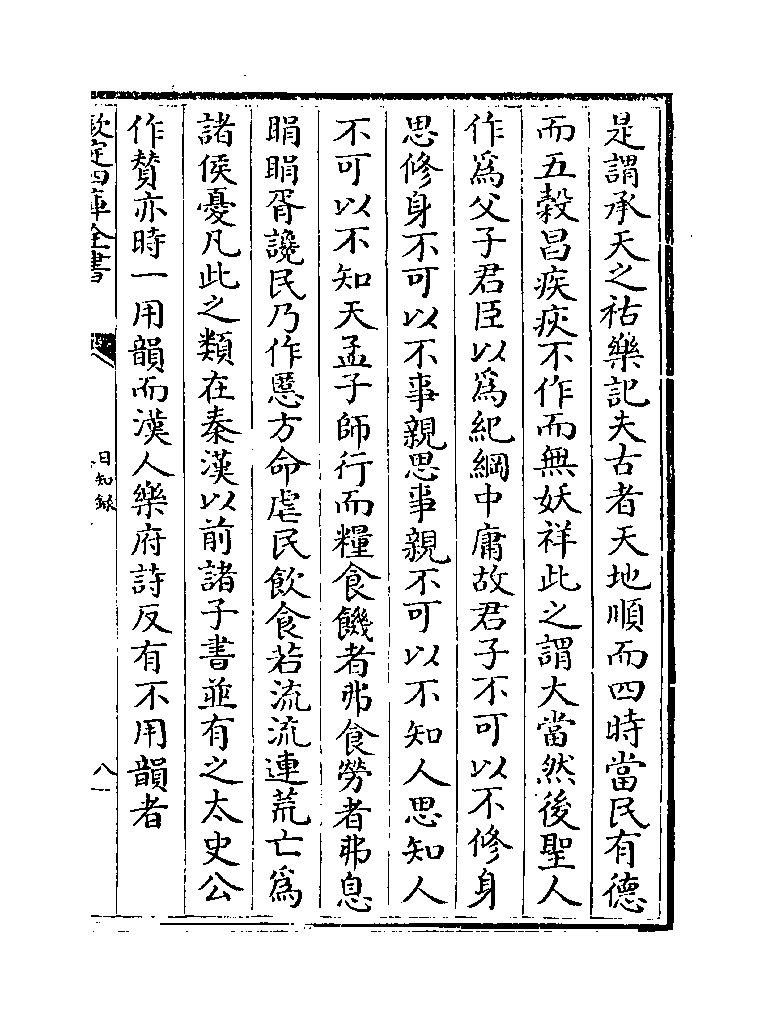 是謂承天之祜樂記夫古者天地順而四時當民有德
而五穀昌疾疢不作而無妖祥此之謂大當然後聖人
作爲父子君臣以爲紀綱中庸故君子不可以不修身
思修身不可以不事親思事親不可以不知人思知人
不可以不知天孟子師行而糧食饑者弗食勞者弗息
睊睊胥讒民乃作慝方命虐民飲食若流流連荒亡爲
諸侯憂凡此之類在秦漢以前諸子書並有之太史公
作贊亦時一用韻而漢人樂府詩反有不用韻者
欽定四庫全書
日知錄
八